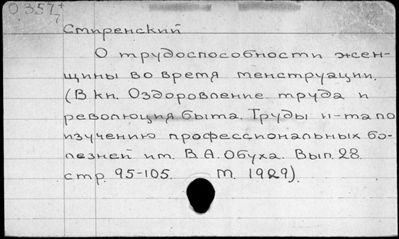 О 357/7
Стиренский
О трудоспособности жен-
щины во время менструации.
(В кн. Оздоровление труда и
революция быта. Труды и-та по
изучению профессиональных бо-
лезней им. В. А. Обуха. Вып. 28
стр. 95-105. М. 1929).